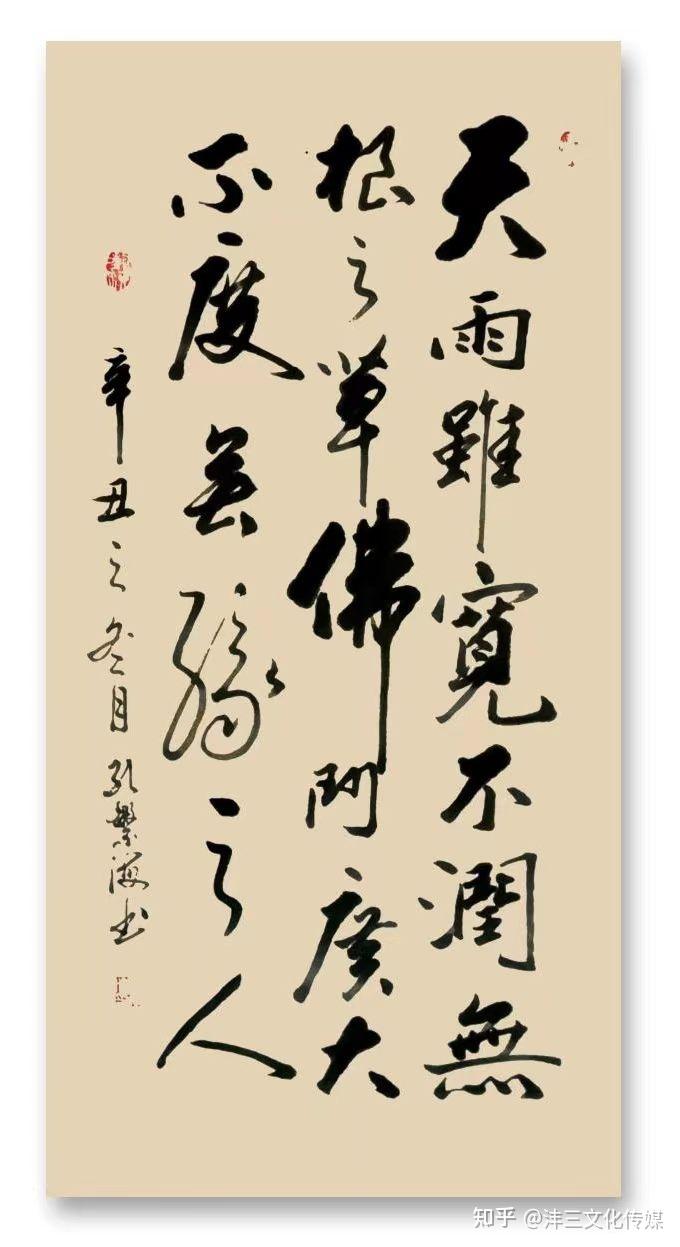 天雨雖寬不潤無
根之草佛門廣大
不度無緣之人
辛丑之冬月孔繁海书
知乎 @沣三文化传媒